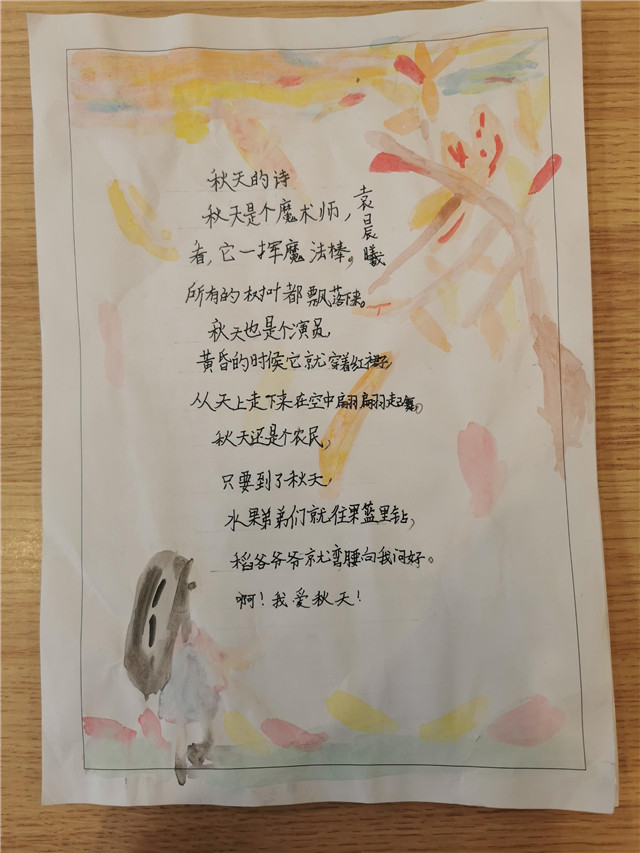 秋天的诗
袁晨曦
秋天是个魔术师，
看，它一挥魔法棒。
所有的树叶都飘落下来。
秋天也是个演员
黄昏的时候它就穿着红裙子
从天上走下来在空中翩翩起舞，
秋天还是个农民，
只要到了秋天，
水果弟弟们就往果篮里钻，
稻谷爷爷就弯腰向我问好。
啊！我爱秋天！